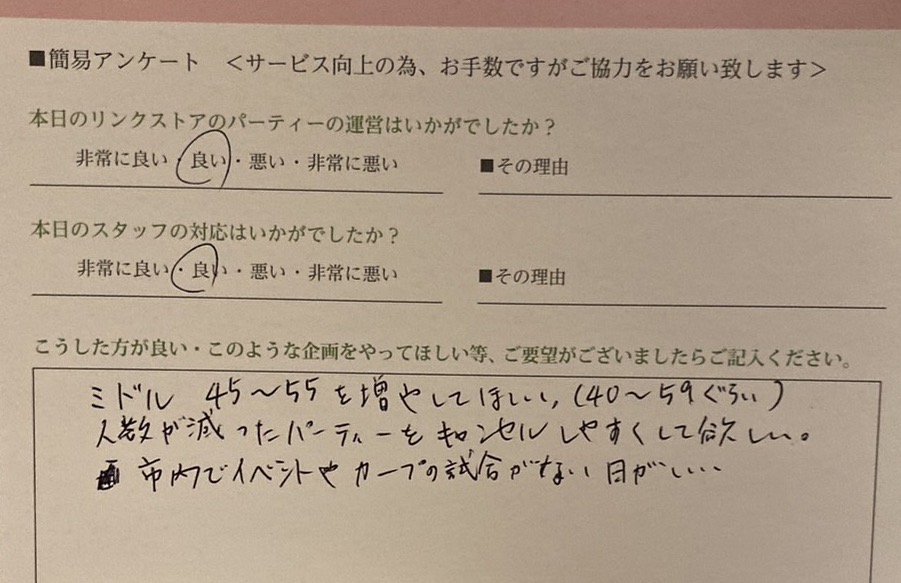 ■簡易アンケート ＜サービス向上の為、お手数ですがご協力をお願い致します＞
本日のリンクストアのパーティーの運営はいかがでしたか？
非常に良い・良い・悪い・非常に悪い ■その理由
本日のスタッフの対応はいかがでしたか？
非常に良い・良い・悪い・非常に悪い ■その理由
こうした方が良い・このような企画をやってほしい等、ご要望がございましたらご記入ください。
ミドル 45～55を増やしてほしい,(40～59ぐらい)
人数が減ったパーティーをキャンセルしやすくして欲しい。
市内でイベントやカープの試合がない日がいい